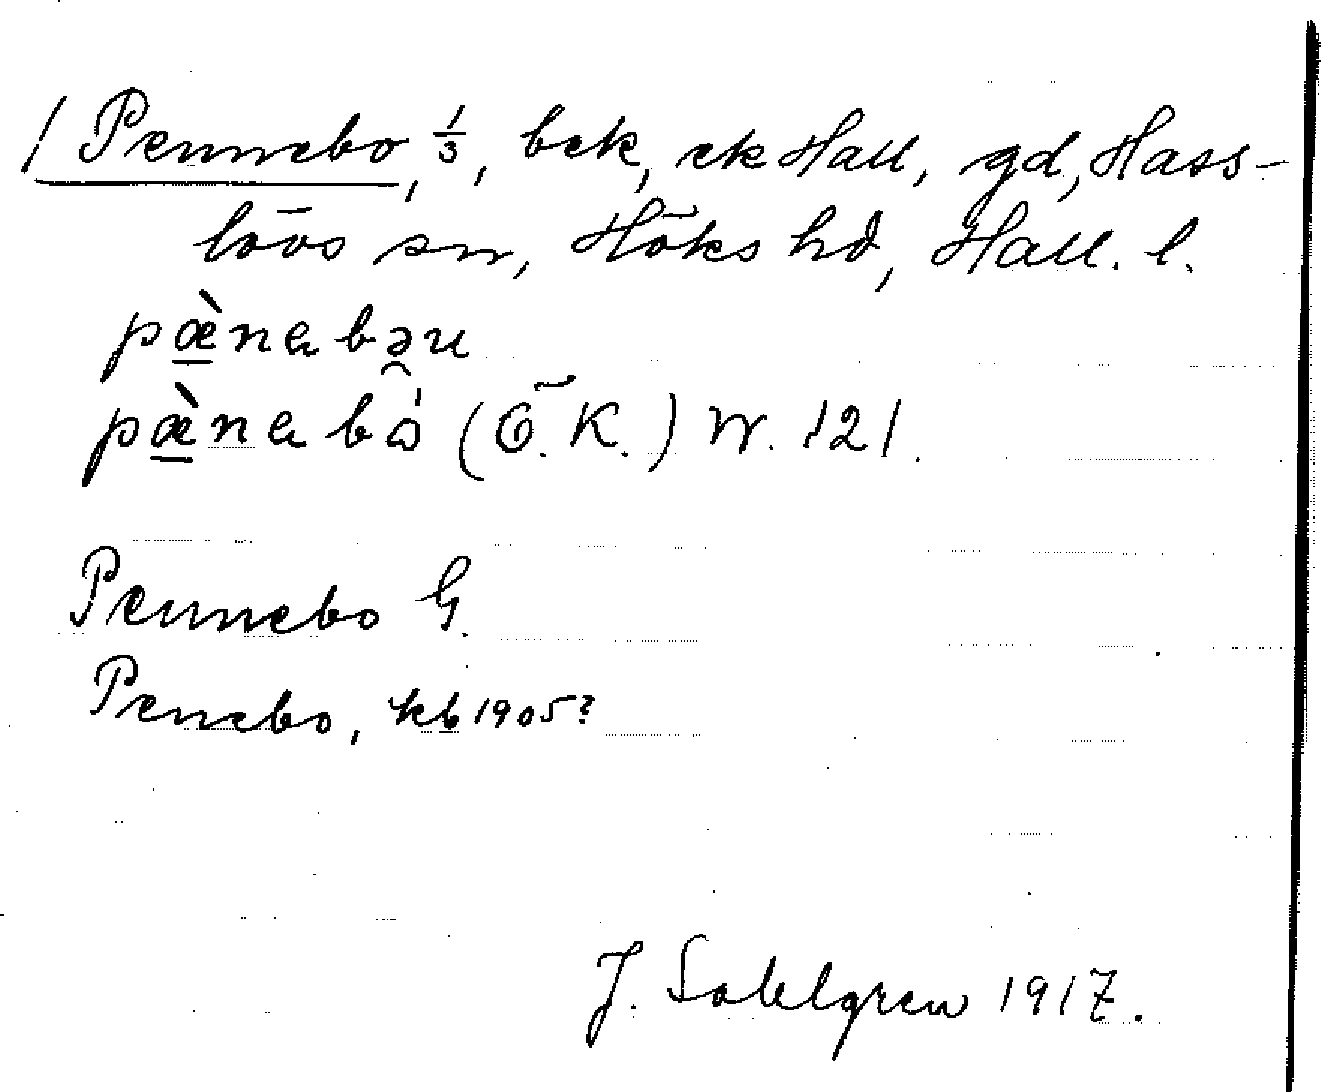 / Pennebo, 1/3, bek, ek Hall, gd, Hass-
lövs sn, Höks hd, Hall. l.
pæ̀nabəu
pæ̀nabɷ̀ (Ö. K.) W. 121.
Pennebo G.
Penebo, kb 1905?
J. Sahlgren 1917.